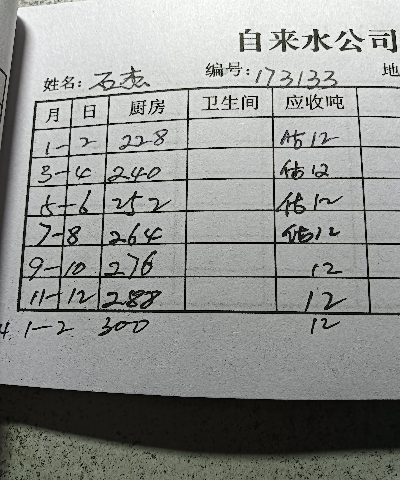 自来水公司
姓名: 石杰 编号: 173133 地
月 日 厨房 卫生间 应收吨
1-2 228 估12
3-4 240 估12
5-6 252 估12
7-8 264 估12
9-10 276 12
11-12 288 12
4 1-2 300 12